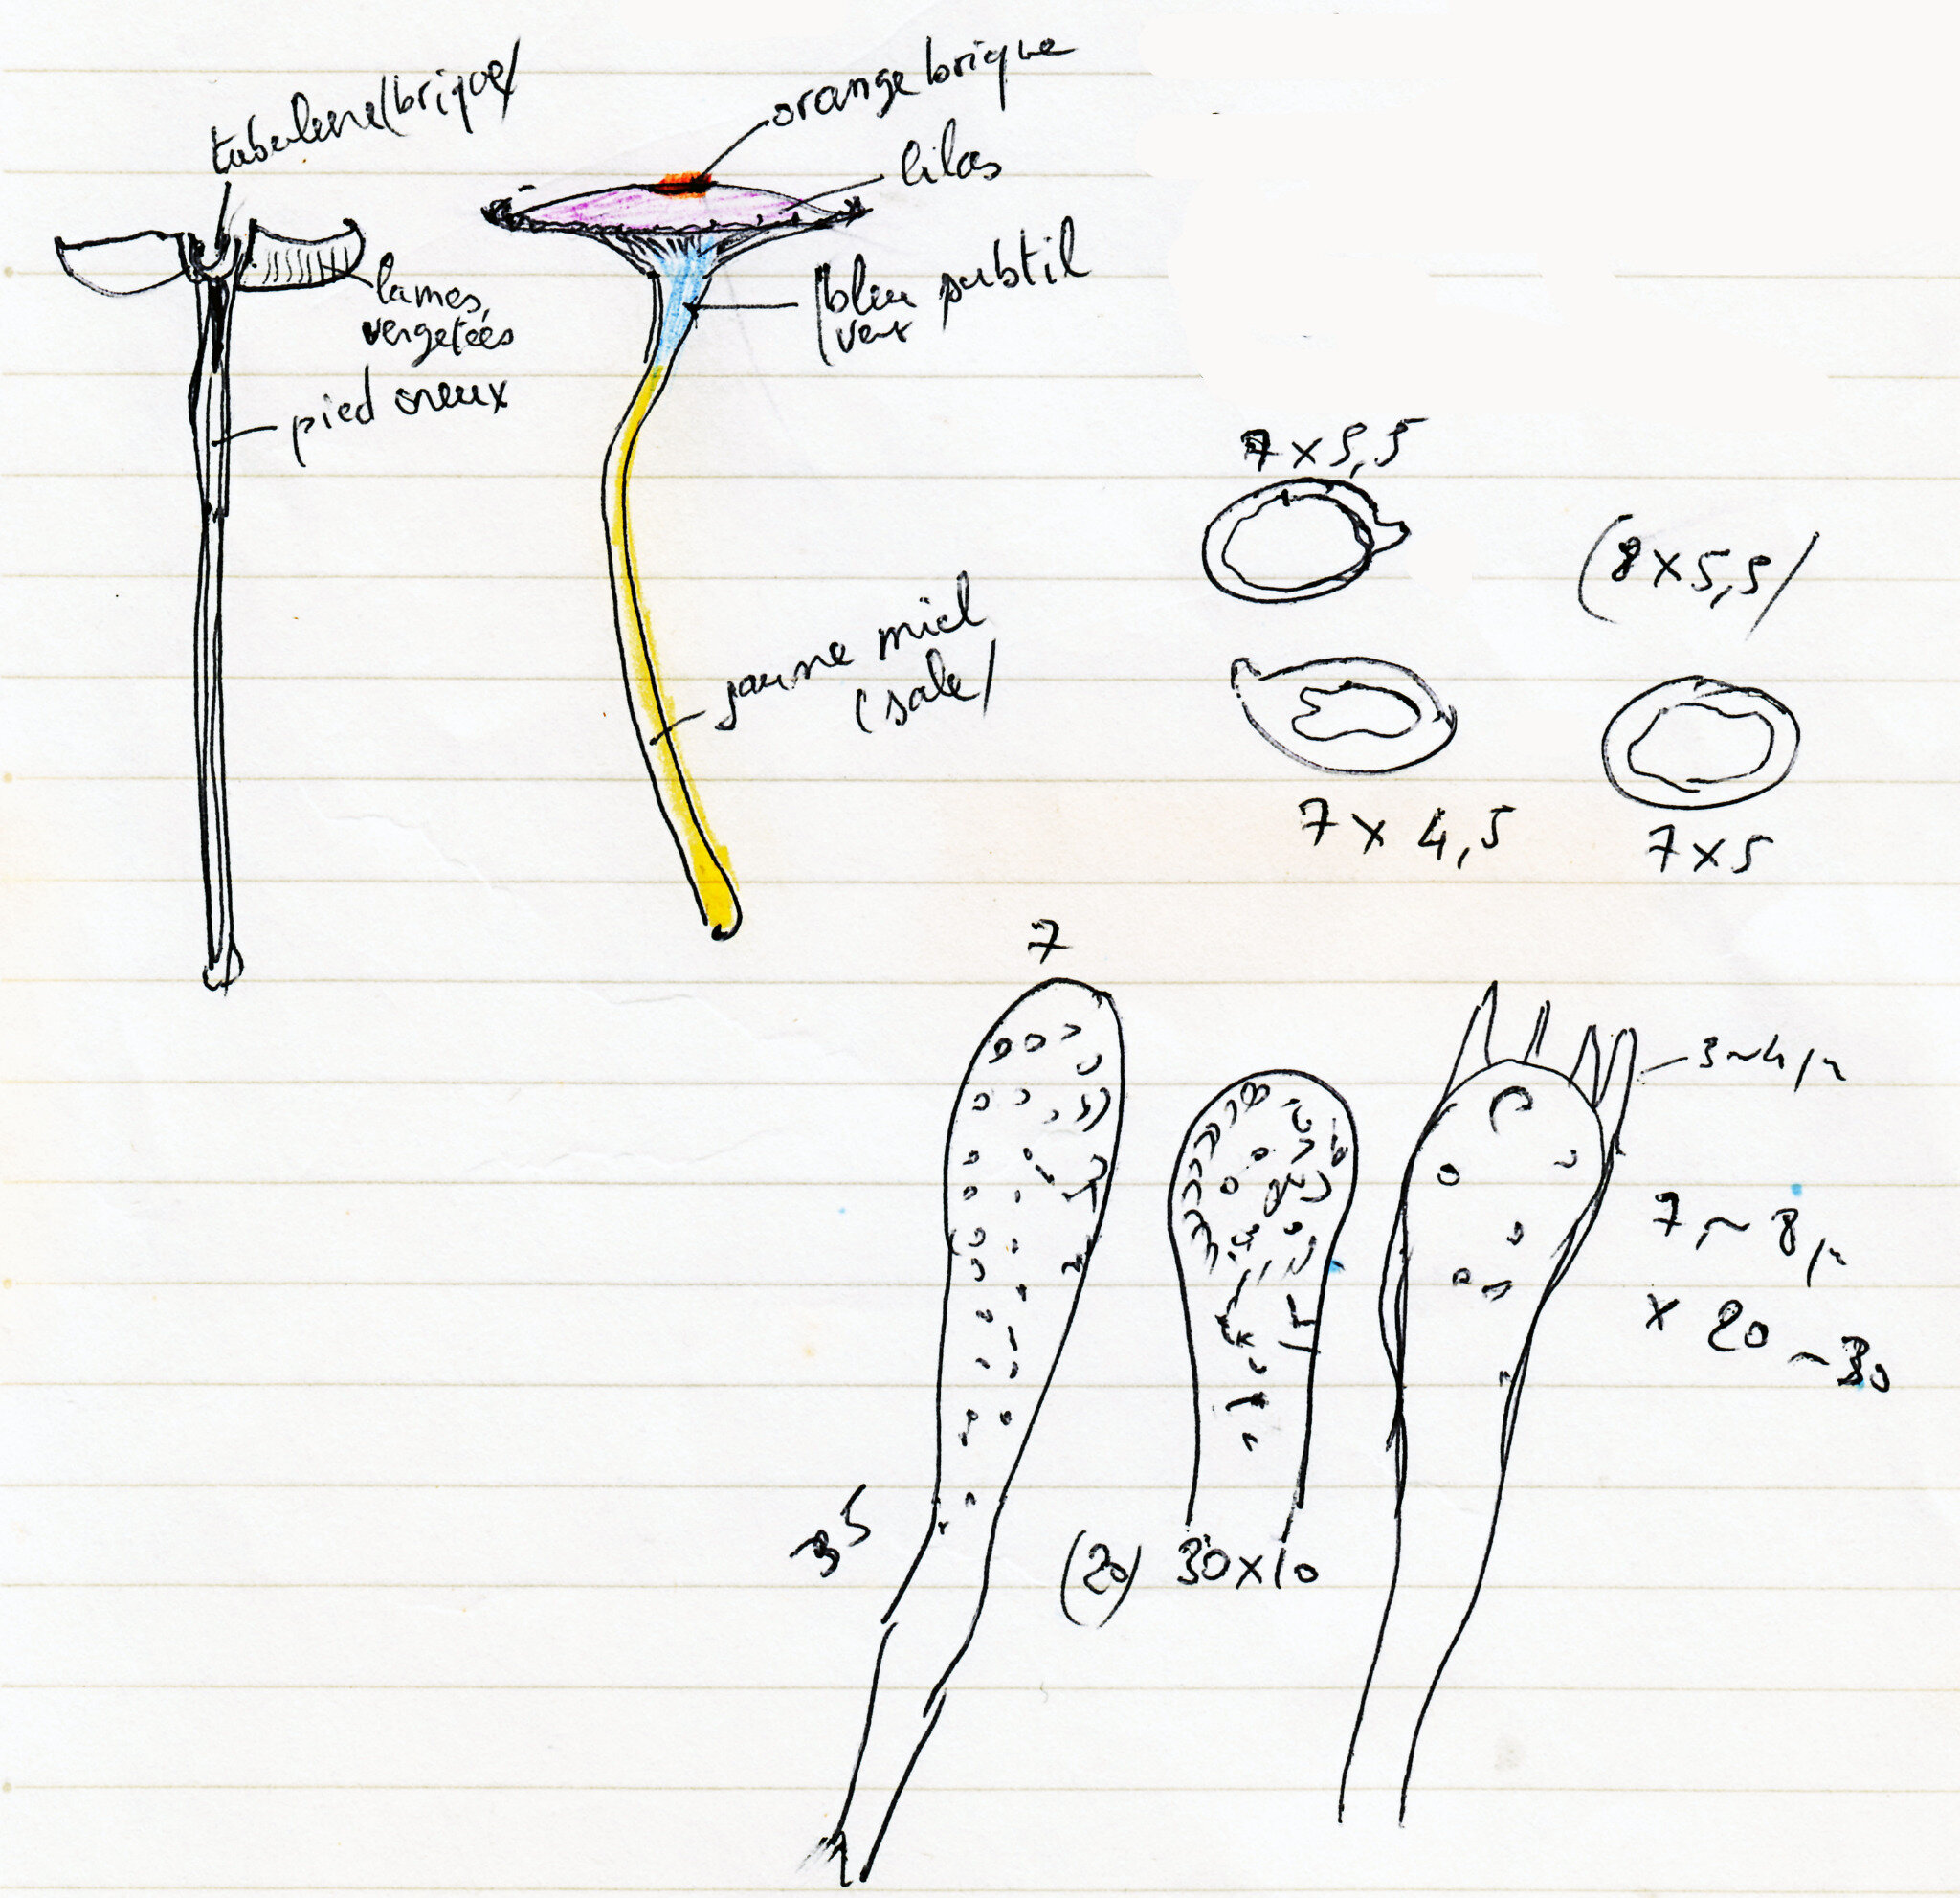 (brique)
orange brique
lilas
lames
vergetées
bleu subtil
pied creux
jaune miel
(sale)
7 x 5,5
(8 x 5,5)
7 x 4,5
7 x 5
7
3~4 µ
7 ~ 8 µ
x 20 ~ 30
35
(20) 30 x 10